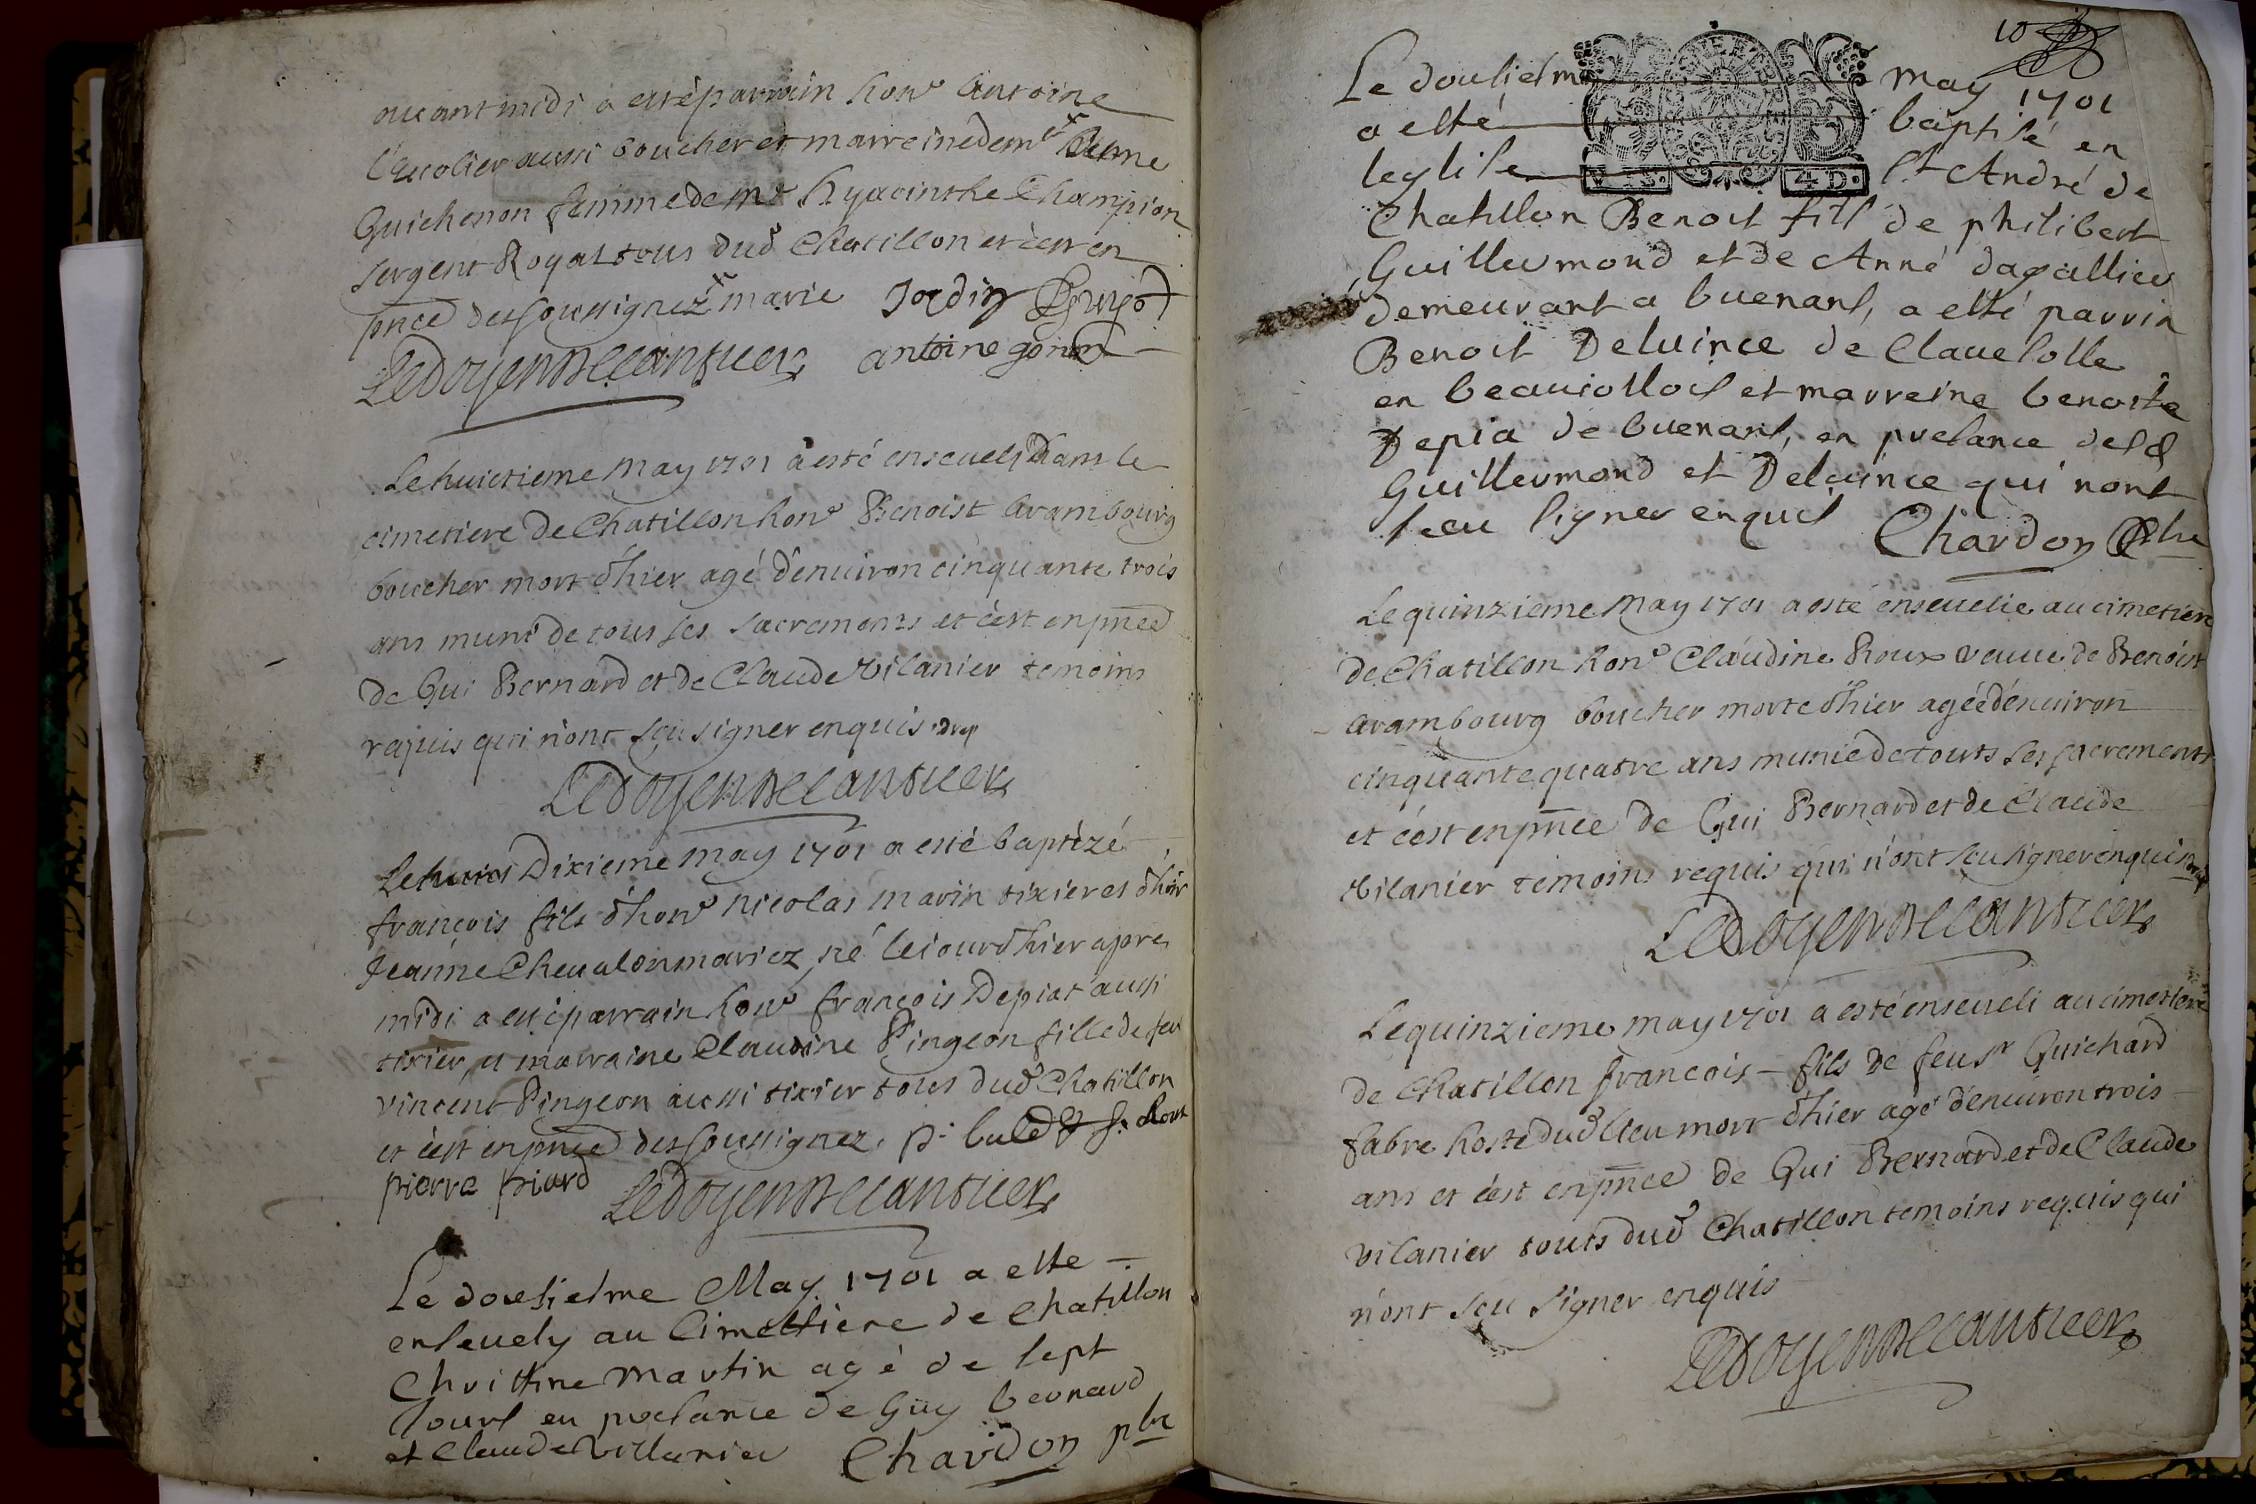 auant midi a esté parrain hon^e Antoine
l'Escolier aussi boucher et marreine dem^e Anne
Guichenon femme de m^e Hyacinthe Champion
sergent Royal tous dud Chatillon et c'est en
pnce des soussignez marie Jordin
Ledoyen Decantuern antoine gonon
Le huictieme may 1701 a esté enseueli dans le
cimetiere de Chatillon hon^e Benoist Arambourg
boucher mort d'hier agé d'enuiron cinquante trois
ans muni de tous ses sacrements et c'est en pnce
de Gui Bernard et de Claude Vilanier temoins
requis qui n'ont sçu signer enquis
Ledoyen Decantuern
Le Dixieme may 1701 a esté baptèzé
françois fils d'hon^e nicolas marin tixier et d'hon
Jeanne Cheualon mariez, né le jour d'hier apres
midi a esté parrain hon^e françois Depiat aussi
tixier, et marraine Claudine Pingeon fille de feu
vincent Pingeon aussi tixier tous dud Chatillon
et c'est en pnce des soussignez.
pierre piard Ledoyen Decantuern
Le douesiesme May 1701 a esté
enseuely au Cimestiere de Chatillon
Christine Martin agé de sept
Jours en presance de Guy bernard
et Claude Villanier Chardon pbr
10
Le dousiesme may 1701
a esté baptisé en
leglise St André de
VIS. 4 D.
Chatillon Benoit fils de philibert
Guillermond et de Anne dagallier
demeurant a buenans, a esté parrin
Benoit Deluince de Clauesolle
en beauiollois et marreine benoite
Depia de buenans, en presance desd
Guillermond et Deluince qui nont
sceu signer enquis Chardon Pbr
Le quinzieme may 1701 a esté enseuelie au cimetiere
de Chatillon hon^e Claudine Roux veuue de Benoist
Arambourg boucher morte d'hier agée d'enuiron
cinquante quatre ans munie de touts ses sacrements
et c'est en pnce de Gui Bernard et de Claude
Vilanier temoins requis qui n'ont sçu signer enquis
Ledoyen Decantuern
Le quinzieme may 1701 a esté enseueli au cimetiere
de Chatillon françois fils de feu sr Guichard
fabre hoste dud lieu mort d'hier agé d'enuiron trois
ans et c'est en pnce de Gui Bernard et de Claude
vilanier touts dud Chatillon temoins requis qui
n'ont sçu signer enquis
Ledoyen Decantuern